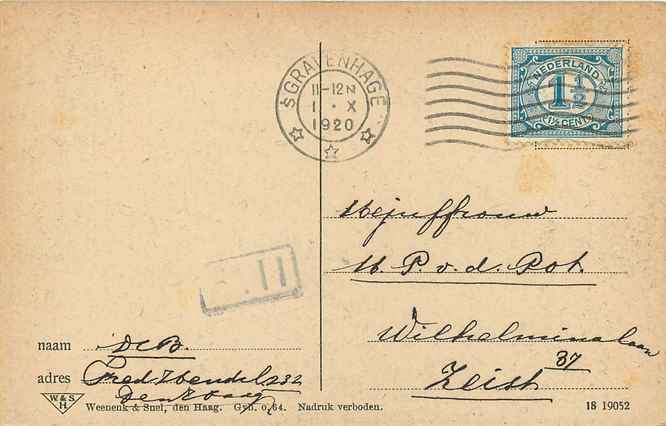 'SGRAVENHAGE
11-12 N
1 · X
1920
NEDERLAND
1 1/2
1½ CENT
Mejuffrouw
M. P. v. d. Pot.
Wilhelminalaan
37
Zeist
II
naam DeB.
adres Fred Hendel 232
Den Haag
W&S
H
Weenenk & Snel, den Haag. Gvh. 0,64. Nadruk verboden.
18 19052